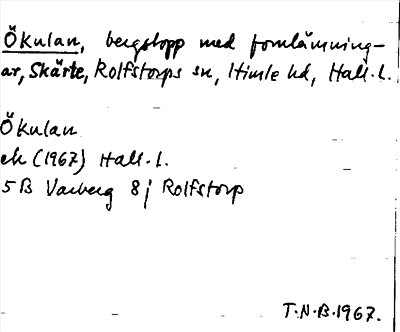 Ökulan, bergstopp med fornlämning-
ar, Skärte, Rolfstorps sn, Himle hd, Hall. l.
Ökulan
ek (1967) Hall. l.
5B Varberg 8j Rolfstorp
T.N.B. 1967.